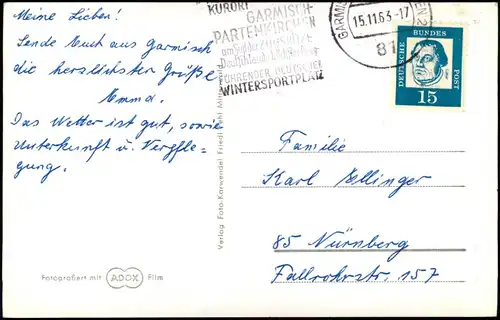 Meine Lieben!
Sende Euch aus Garmisch
die herzlichsten Grüße
Emma.
Das Wetter ist gut, sowie
Unterkunft u. Verpfle-
gung.
KURORT
GARMISCH-
PARTENKIRCHEN
am Fuße der Zugspitze
Deutschlands
FÜHRENDER DEUTSCHER
WINTERSPORTPLATZ
15.11.63-17
81
DEUTSCHE BUNDES POST
15
Familie
Karl Ellinger
85 Nürnberg
Fallrohrstr. 157
Verlag Foto-Karwendel Friedl
Fotografiert mit ADOX Film